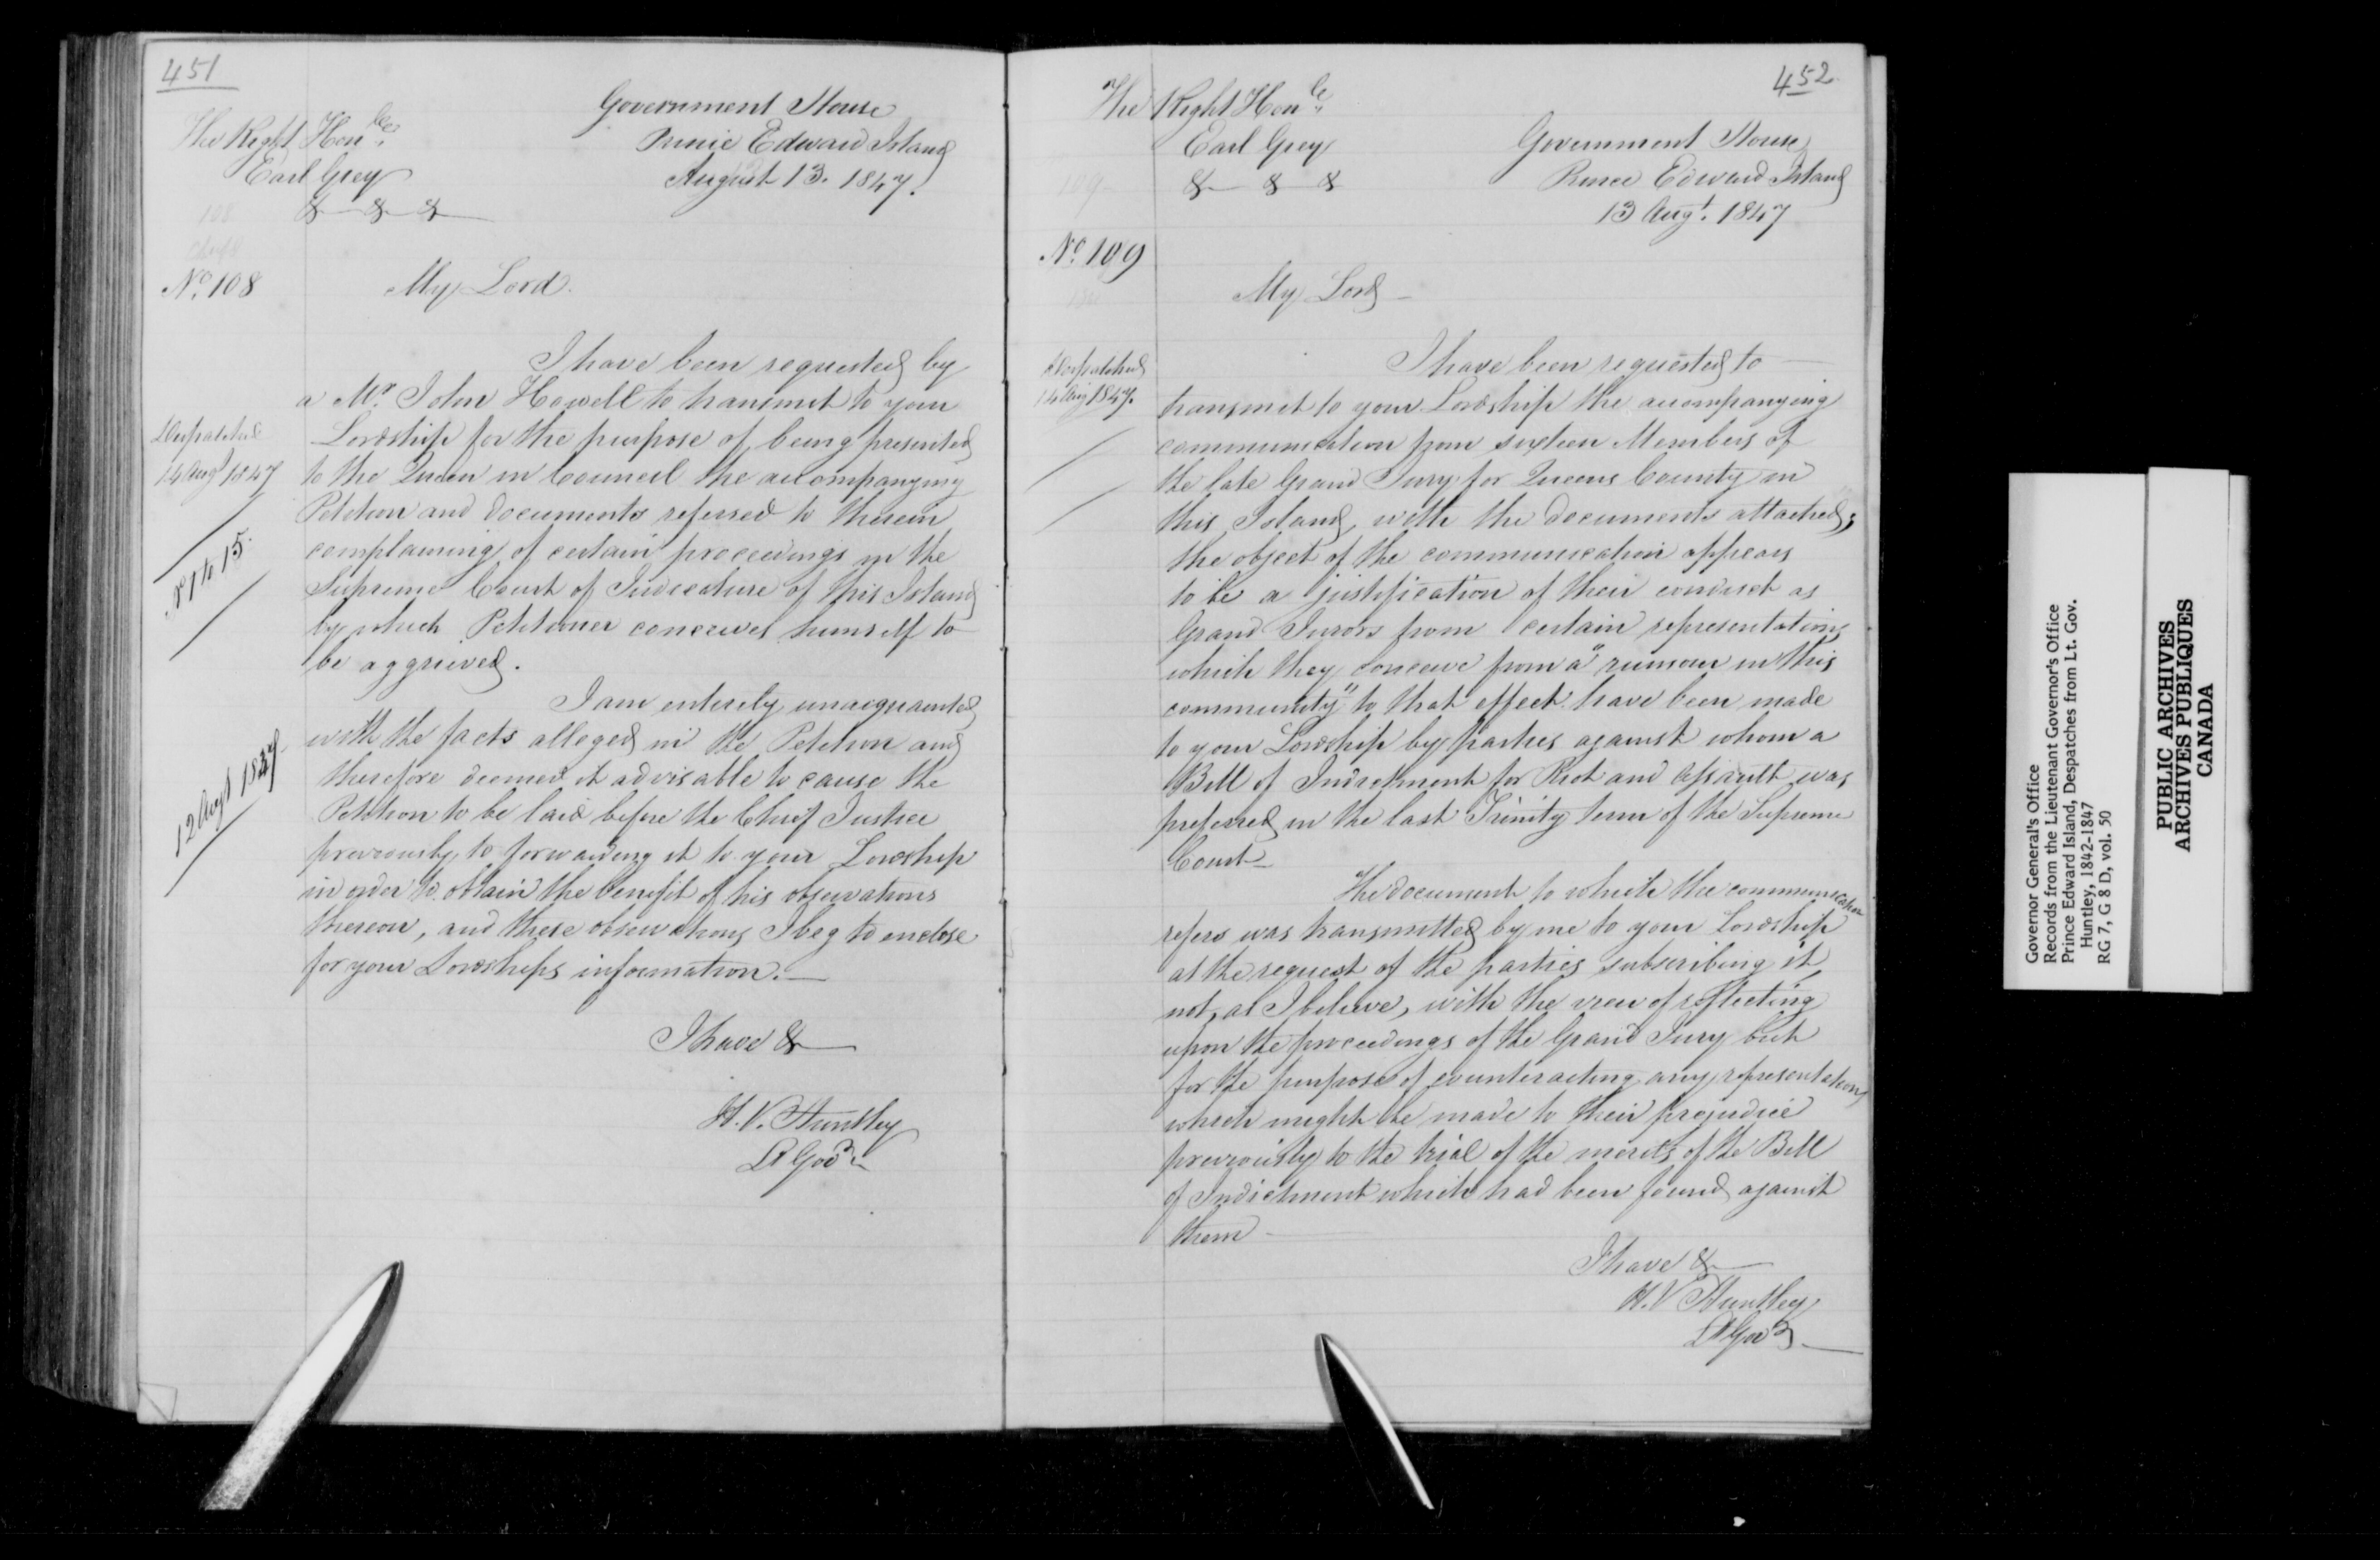 451
Government House
Prince Edward Island
August 13. 1847.
The Right Honble
Earl Grey
& & &
108
No. 108
My Lord.
I have been requested by
a Mr John Howell to transmit to your
Lordship for the purpose of being presented
to the Queen in Council the accompanying
Petition and documents referred to therein
complaining of certain proceedings in the
Supreme Court of Judicature of this Island
by which Petitioner conceives himself to
be aggrieved.
Despatched
14 Augt 1847
No 1 to 15.
I am entirely unacquainted
with the facts alleged in the Petition and
therefore deemed it advisable to cause the
Petition to be laid before the Chief Justice
previously to forwarding it to your Lordship
in order to obtain the benefit of his observations
thereon, and these observations I beg to enclose
for your Lordships information.
12 Augt 1847
I have &
H. V. Huntley
Lt Govr
452
The Right Honle
Earl Grey
& & &
Government House
Prince Edward Island
13 Augt. 1847
109
No. 109
My Lord
Despatched
14 Aug 1847.
I have been requested to
transmit to your Lordship the accompanying
communication from sixteen Members of
the late Grand Jury for Queens County in
this Island, with the documents attached;
the object of the communication appears
to be a justification of their conduct as
Grand Jurors from certain representations
which they conceive from a "rumour in this
community" to that effect have been made
to your Lordship by parties against whom a
Bill of Indictment for Riot and Assault was
preferred in the last Trinity term of the Supreme
Court
The document to which the communication
refers was transmitted by me to your Lordship
at the request of the parties subscribing it,
not, as I believe, with the view of reflecting
upon the proceedings of the Grand Jury but
for the purpose of counteracting any representations
which might be made to their prejudice
previously to the trial of the merits of the Bill
of Indictment which had been found against
them
I have &
H. V Huntley
Lt Govr
Governor General's Office
Records from the Lieutenant Governor's Office
Prince Edward Island, Despatches from Lt. Gov.
Huntley, 1842-1847
RG 7, G 8 D, vol. 50
PUBLIC ARCHIVES
ARCHIVES PUBLIQUES
CANADA